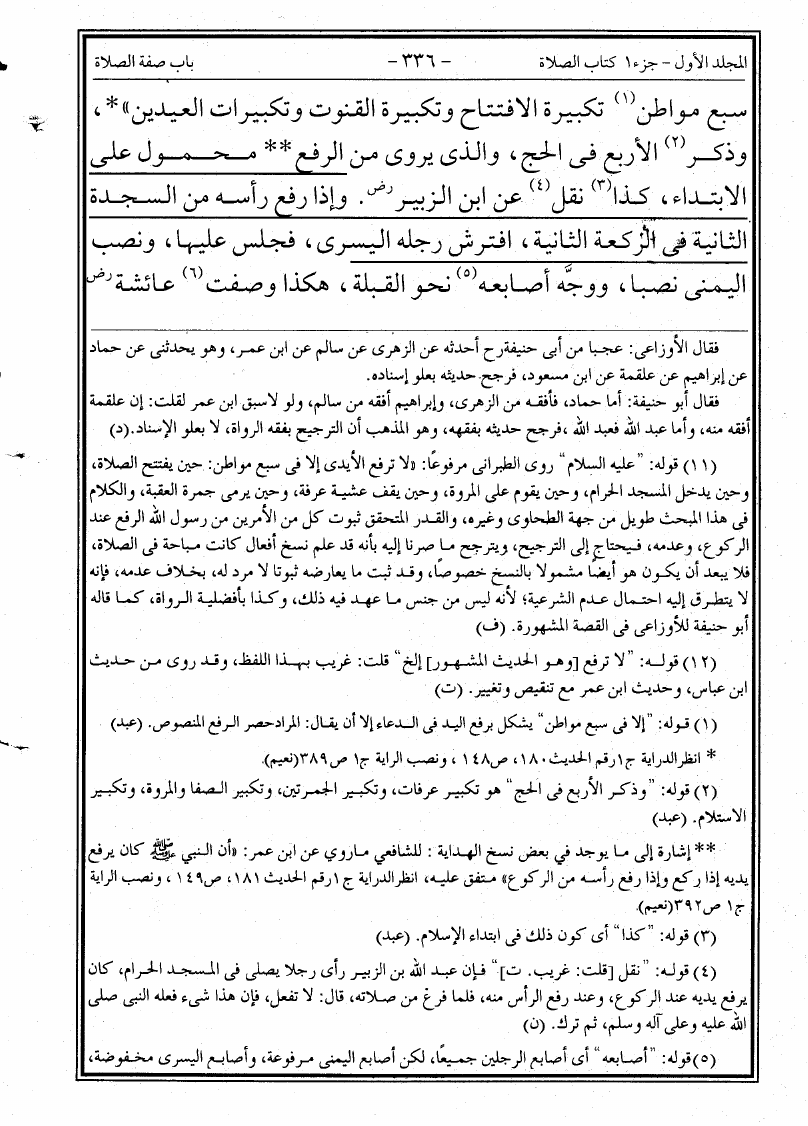 المجلد الأول - جزء١ كتاب الصلاة - ٣٣٦ - باب صفة الصلاة
سبع مواطن(١) تكبيرة الافتتاح وتكبيرة القنوت وتكبيرات العيدين»*،
وذكر(٢) الأربع فى الحج، والذى يروى من الرفع** محمول على
الابتداء، كذا(٣) نقل(٤) عن ابن الزبير رض. وإذا رفع رأسه من السجدة
الثانية فى الركعة الثانية، افترش رجله اليسرى، فجلس عليها، ونصب
اليمنى نصبا، ووجَّه أصابعه(٥) نحو القبلة، هكذا وصفت(٦) عائشة رض
فقال الأوزاعى: عجبا من أبى حنيفة رح أحدثه عن الزهرى عن سالم عن ابن عمر، وهو يحدثنى عن حماد
عن إبراهيم عن علقمة عن ابن مسعود، فرجح حديثه بعلو إسناده.
فقال أبو حنيفة: أما حماد، فأفقه من الزهرى، وإبراهيم أفقه من سالم، ولو لا سبق ابن عمر لقلت: إن علقمة
أفقه منه، وأما عبد الله فعبد الله ،فرجح حديثه بفقهه، وهو المذهب أن الترجيح بفقه الرواة، لا بعلو الإسناد.(د)
(١١) قوله: ”عليه السلام“ روى الطبرانى مرفوعًا: «لا ترفع الأيدى إلا فى سبع مواطن: حين يفتتح الصلاة،
وحين يدخل المسجد الحرام، وحين يقوم على المروة، وحين يقف عشية عرفة، وحين يرمى جمرة العقبة، والكلام
فى هذا المبحث طويل من جهة الطحاوى وغيره، والقدر المتحقق ثبوت كل من الأمرين من رسول الله الرفع عند
الركوع، وعدمه، فيحتاج إلى الترجيح، ويترجح ما صرنا إليه بأنه قد علم نسخ أفعال كانت مباحة فى الصلاة،
فلا يبعد أن يكون هو أيضًا مشمولا بالنسخ خصوصًا، وقد ثبت ما يعارضه ثبوتا لا مرد له، بخلاف عدمه، فإنه
لا يتطرق إليه احتمال عدم الشرعية؛ لأنه ليس من جنس ما عهد فيه ذلك، وكذا بأفضلية الرواة، كما قاله
أبو حنيفة للأوزاعى فى القصة المشهورة. (ف)
(١٢) قوله: ”لا ترفع [وهو الحديث المشهور] إلخ“ قلت: غريب بهذا اللفظ، وقد روى من حديث
ابن عباس، وحديث ابن عمر مع تنقيص وتغيير. (ت)
(١) قوله: ”إلا فى سبع مواطن“ يشكل برفع اليد فى الدعاء إلا أن يقال: المراد حصر الرفع المنصوص. (عبد)
* انظر الدراية ج١رقم الحديث١٨٠، ص١٤٨ ، ونصب الراية ج١ ص٣٨٩(نعيم).
(٢) قوله: ”وذكر الأربع فى الحج“ هو تكبير عرفات، وتكبير الجمرتين، وتكبير الصفا والمروة، وتكبير
الاستلام. (عبد)
** إشارة إلى ما يوجد في بعض نسخ الهداية : للشافعي ماروي عن ابن عمر: «أن النبي ﷺ كان يرفع
يديه إذا ركع وإذا رفع رأسه من الركوع» متفق عليه، انظر الدراية ج١رقم الحديث ١٨١، ص١٤٩ ، ونصب الراية
ج١ ص٣٩٢(نعيم).
(٣) قوله: ”كذا“ أى كون ذلك فى ابتداء الإسلام. (عبد)
(٤) قوله: ”نقل [قلت: غريب. ت]“ فإن عبد الله بن الزبير رأى رجلا يصلى فى المسجد الحرام، كان
يرفع يديه عند الركوع، وعند رفع الرأس منه، فلما فرغ من صلاته، قال: لا تفعل، فإن هذا شىء فعله النبى صلى
الله عليه وعلى آله وسلم، ثم ترك. (ن)
(٥)قوله: ”أصابعه“ أى أصابع الرجلين جميعًا، لكن أصابع اليمنى مرفوعة، وأصابع اليسرى مخفوضة،